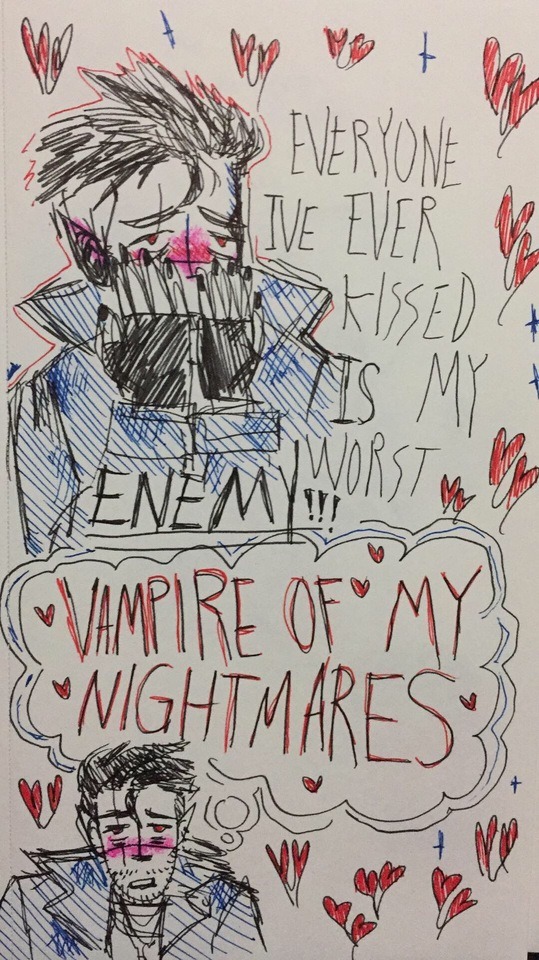 EVERYONE
IVE EVER
KISSED
IS MY
WORST
ENEMY!!!
VAMPIRE OF MY
NIGHTMARES